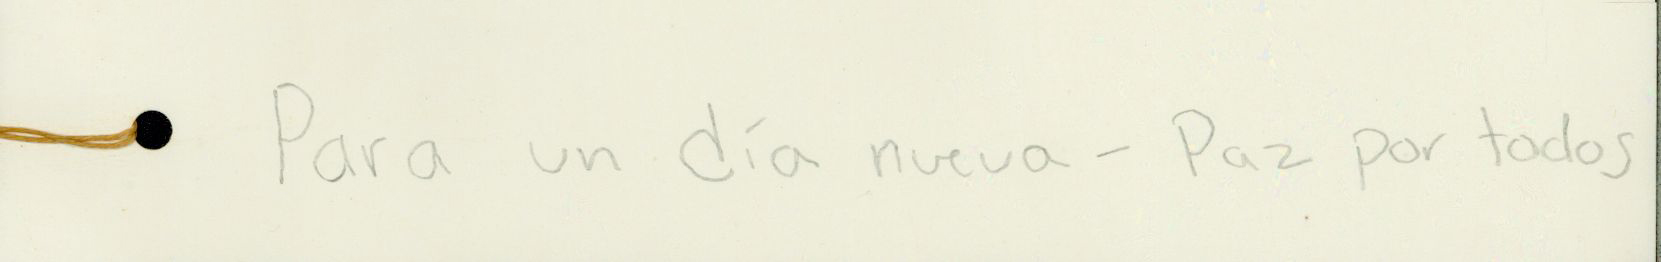 Para un día nueva - Paz por todos